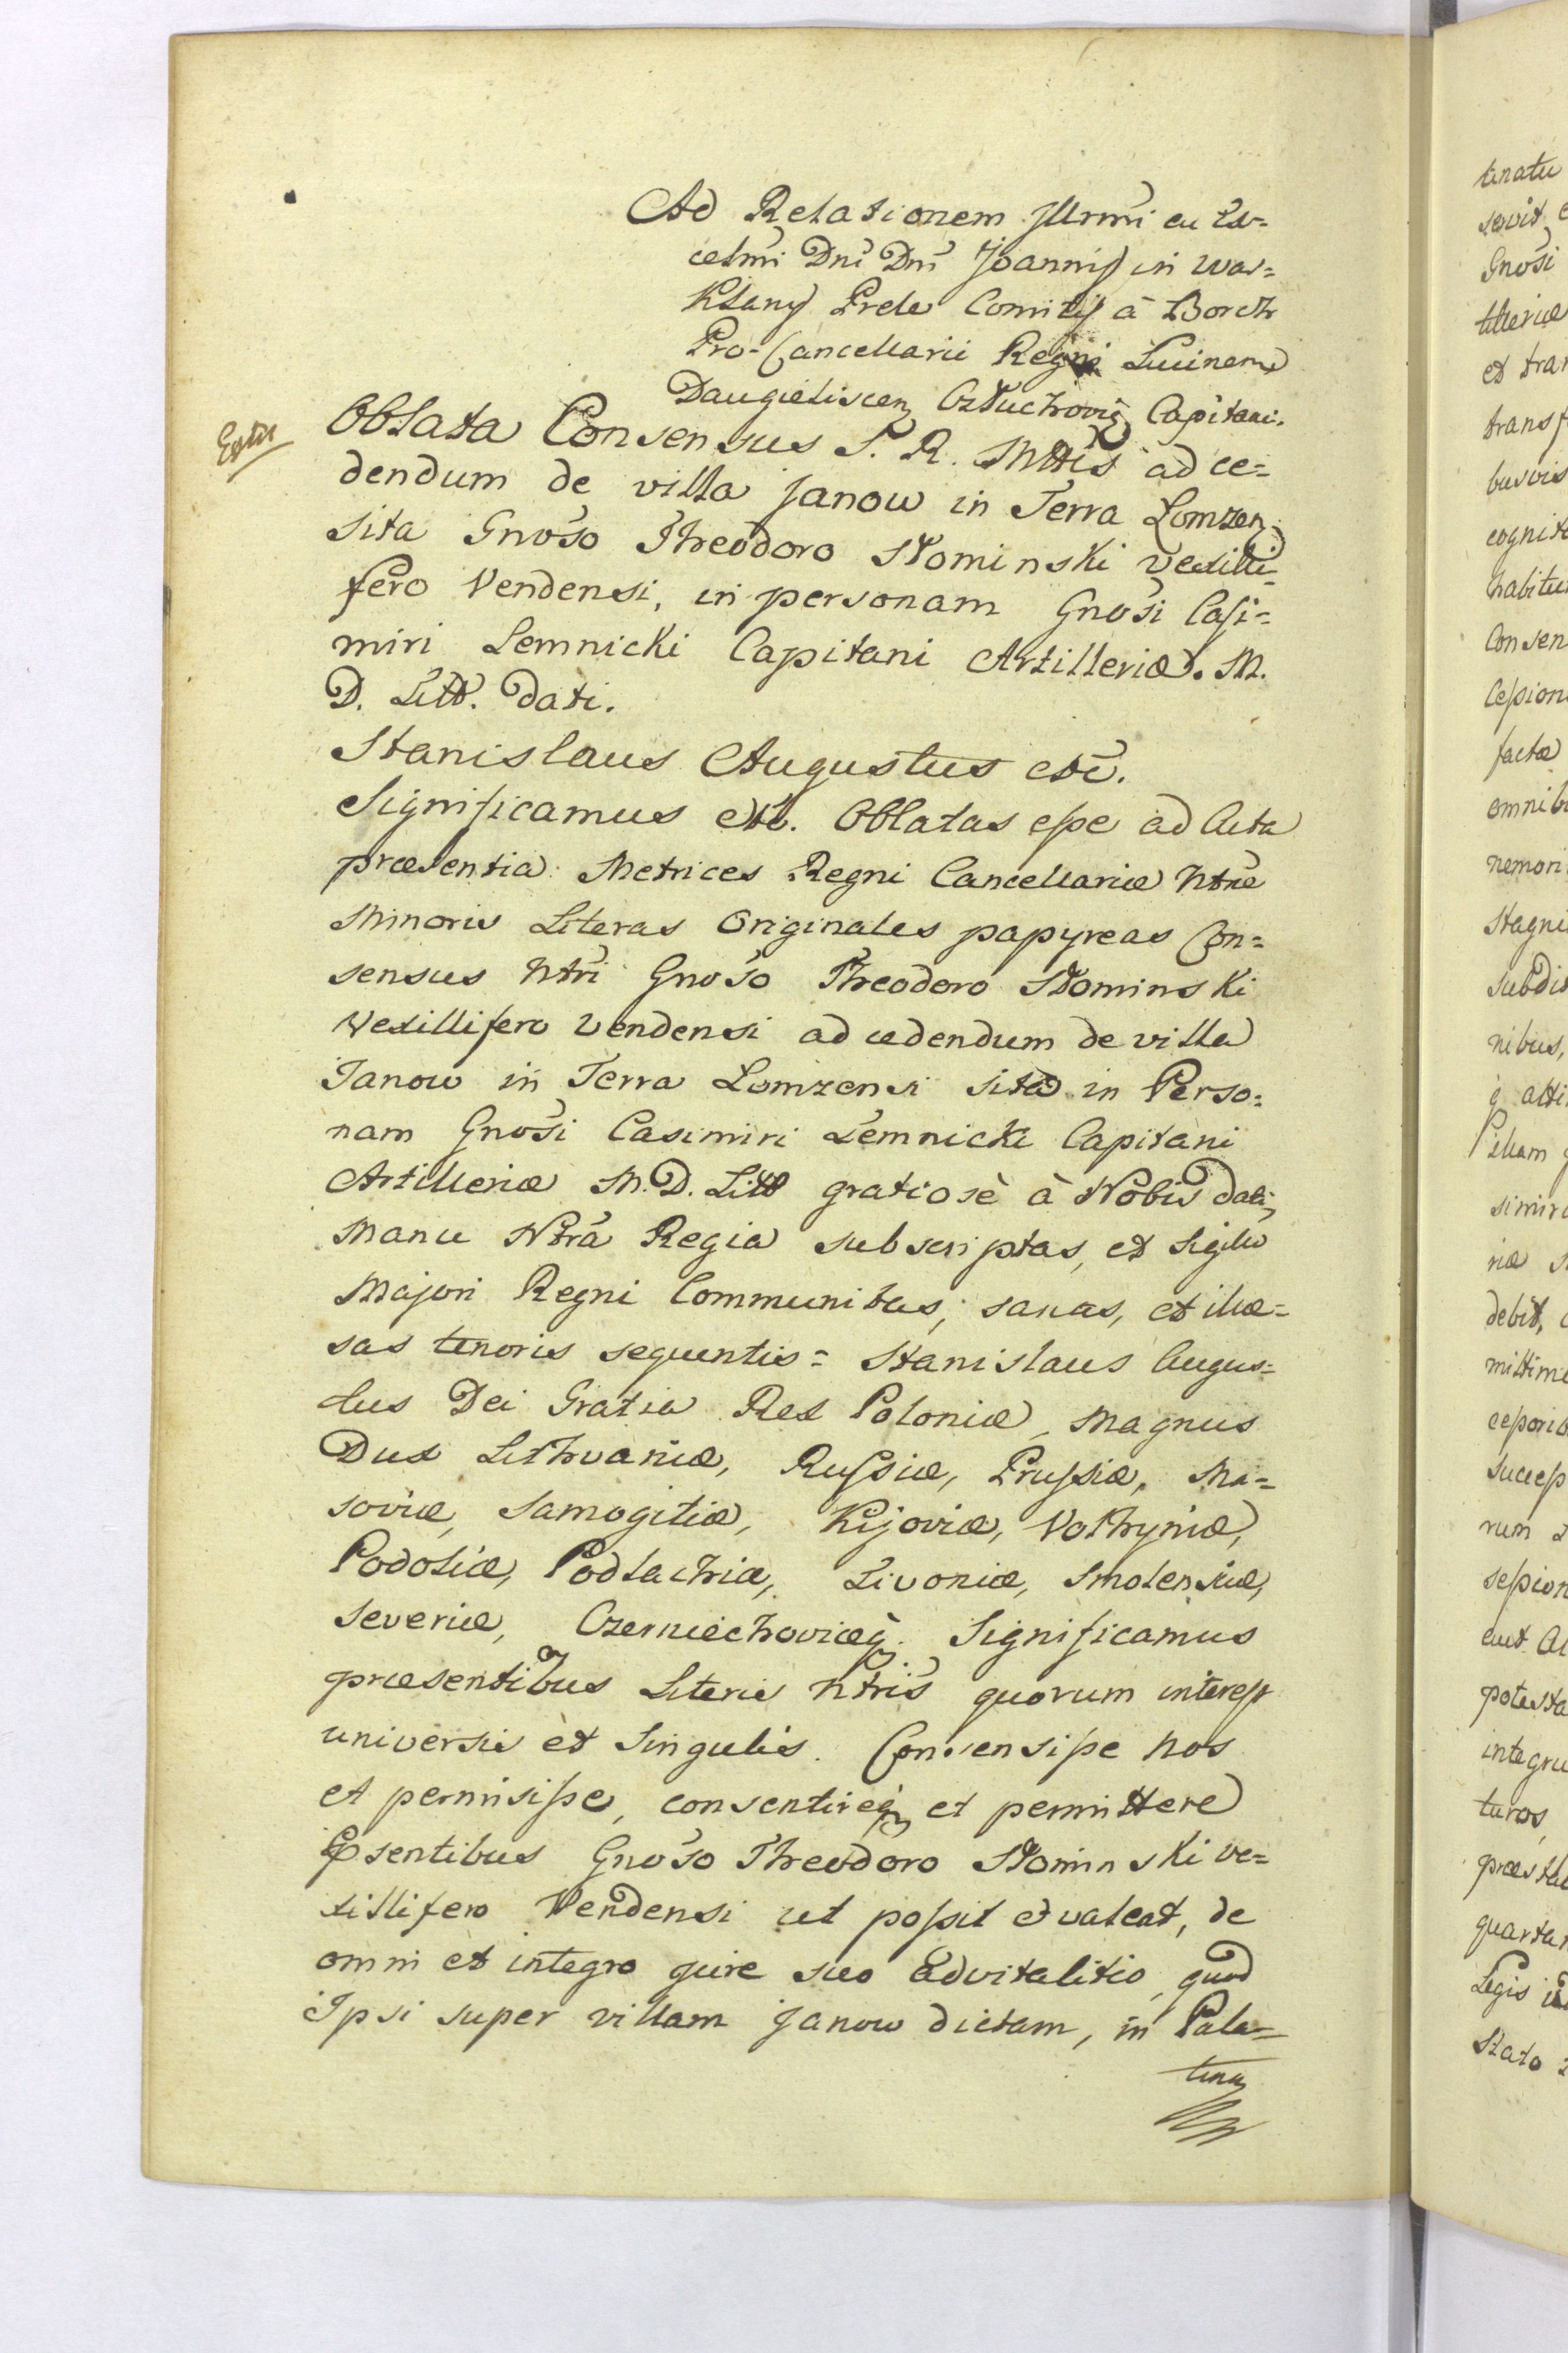 Ad Relationem Jllrmi eu Ex=
celmi Dni Dni Joannis in War=
Klany Prele Comitis à Borch
Pro-Cancellarii Regni Lucinen
Daugieliscen Człuchovien Capitani.
Oblata Consensus S. R. Mttis ad ce=
dendum de villa Janow in Terra Lomzen
sita Gnoso Theodoro Słominski Vexilli=
fero Vendensi, in personam Gnosi Casi=
miri Lemnicki Capitani Artilleriæ. M.
D. Litt. dati.
Stanislaus Augustus etc.
Significamus etc. Oblatas esse ad Acta
præsentia Metrices Regni Cancellariæ Ntræ
Minoris Literas Originales papyreas Con=
sensus Ntri Gnoso Theodoro Słominski
Vexillifero Vendensi ad cedendum de villa
Janow in Terra Lomzensi sita in Perso=
nam Gnosi Casimiri Lemnicki Capitani
Artilleriæ M. D. Litt gratiosè à Nobis dati,
Manu Ntrâ Regia subscriptas, et Sigillo
Majori Regni Communitas, sanas, et illæ=
sas tenoris sequentis= Stanislaus Augus=
tus Dei Gratia Rex Poloniæ, Magnus
Dux Lithvaniæ, Russiæ, Prussiæ, Ma=
soviæ, Samogitiæ, Kijoviæ, Volhyniæ,
Podoliæ, Podlachiæ, Livoniæ, Smolensiæ,
Severiæ, Czerniechoviæq. Significamus
præsentibus Literis Ntris quorum interest
universis et Singulis. Consensisse Nos
et permisisse, consentireq et permittere
Psentibus Gnoso Theodoro Słominski ve=
xillifero Vendensi ut possit et valeat, de
omni et integro jure suo advitalitio, quod
Ipsi super villam Janow dictam, in Pala=
tina
tinatu
Gnosi
tilleriæ
et tran
transf
busvis
cognit
habitu
Consen
Cession
facta
omnib
nemori
Stagni
Subdit
nibus,
Villam
simir
debit,
mittim
cessorib
Success
rum
session
aut
potesta
integru
turos,
præsta
quarta
Legis
Stato